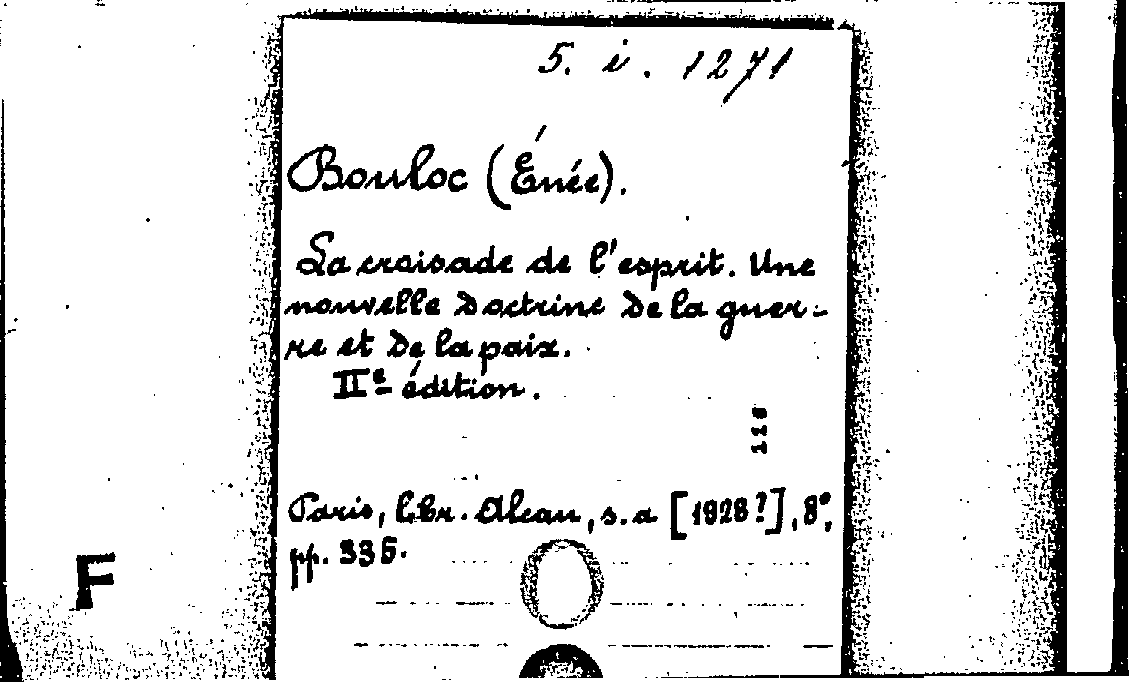 5. i. 1271
Bouloc (Énée).
La croisade de l'esprit. Une
nouvelle doctrine de la guer-
re et de la paix.
IIe édition.
118
Paris, libr. Alcan, s.a [1928?], 8°,
pp. 336.
F